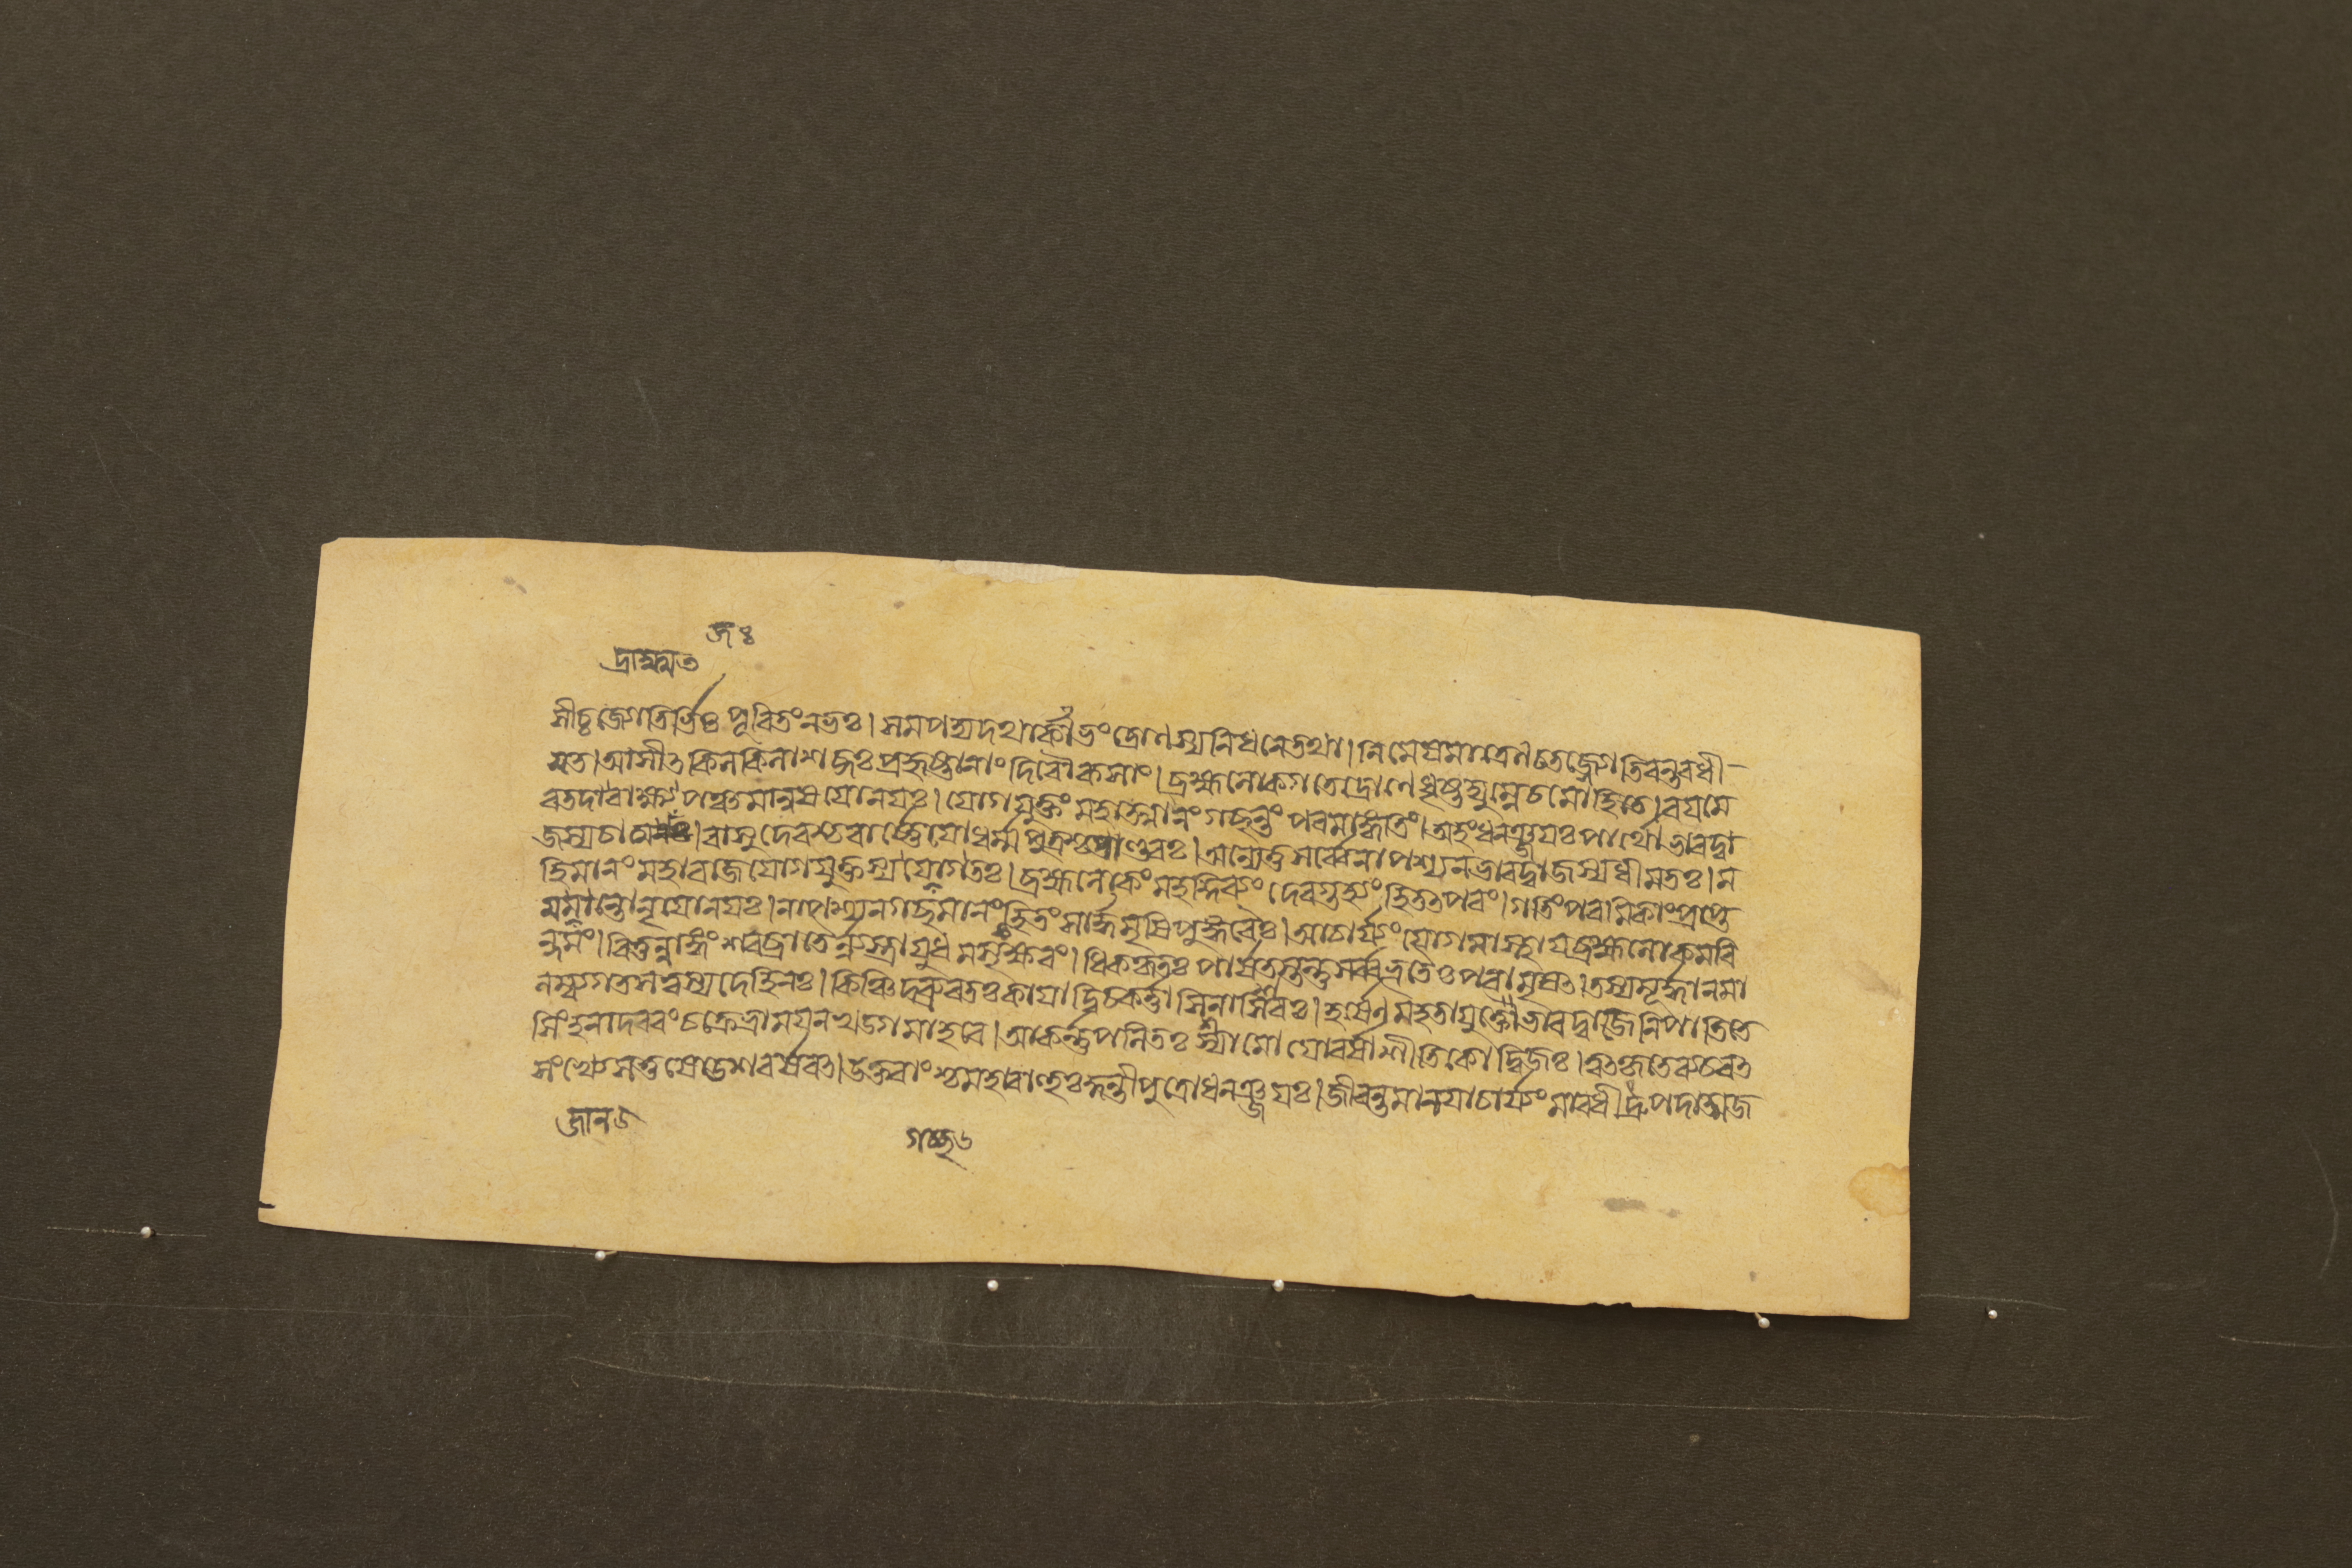 জঃ
দ্রাহ্মমত
সীচ্চজ্যোতির্ভিঃ পূরিতং নভঃ। সমপদ্যদথার্কাভং দ্রোণস্য নিধনে তথা। নিমেষমাত্রেন চ তজ্জ্যোতিরন্তরধী-
যত। আসীত্ কিলকিলাশব্দঃ প্রহৃষ্টানাং দিবৌকসাং। ব্রহ্মলোকগতে দ্রোণে ধৃষ্টদ্যুম্নে চ মোহিতে। বয়মে
ব তদাদ্রাক্ষ্ম পঞ্চ মানুষযোনয়ঃ। যোগযুক্তং মহাত্মানং গচ্ছন্তং পরমাঙ্গতিং। অহং ধনঞ্জয়ঃ পার্থো ভারদ্বা
জস্য চাত্মজঃ। বাসুদেবশ্চ বার্ষ্ণেয়ো ধর্ম্মপুত্রশ্চ পাণ্ডবঃ। অন্যে তু সর্ব্বে নাপশ্যন ভারদ্বাজস্য ধীমতঃ। ম
হিমানং মহারাজ যোগযুক্তস্য গচ্ছতঃ। ব্রহ্মলোকং মহদ্দিব্যং দেবগুহ্যং হি তত্ পরং। গতিং পরমিকাং প্রাপ্ত
মজানন্তো নৃযোনয়ঃ। নাপশ্যন গচ্ছমানং হি তং সার্দ্ধমৃষিপুঙ্গবৈঃ। আচার্য্যং যোগমাস্থায় ব্রহ্মলোকমরি
ন্দমং। বিতুন্নাঙ্গং শরব্রাতৈর্ন্যস্তায়ুধমসৃক্ষরং। ধিক্কৃতঃ পার্ষতস্তন্তু সর্ব্বভূতৈঃ পরামৃষত্। তস্য মূর্দ্ধানমা
লম্ব্য গতসত্ত্বস্য দেহিনঃ। কিঞ্চিদব্রুবতঃ কায়াদ্বিচকর্ত্তাসিনা শিরঃ। হর্ষেণ মহতা যুক্তো ভারদ্বাজে নিপাতিতে
সিংহনাদরবং চক্রে ভ্রাময়ন খড্গমাহবে। আকর্ণপলিতঃ শ্যামো বয়সাশীতিকো দ্বিজঃ। ত্বত্কৃতে ব্যচরত্
সংখ্যে স তু ষোডশবর্ষবত্। উক্তবাংশ্চ মহাবাহুঃ কুন্তীপুত্রো ধনঞ্জয়ঃ। জীবন্তমানয়াচার্য্যং মা বধী দ্রুপদাত্মজ
জান ৬
গচ্ছ ৬